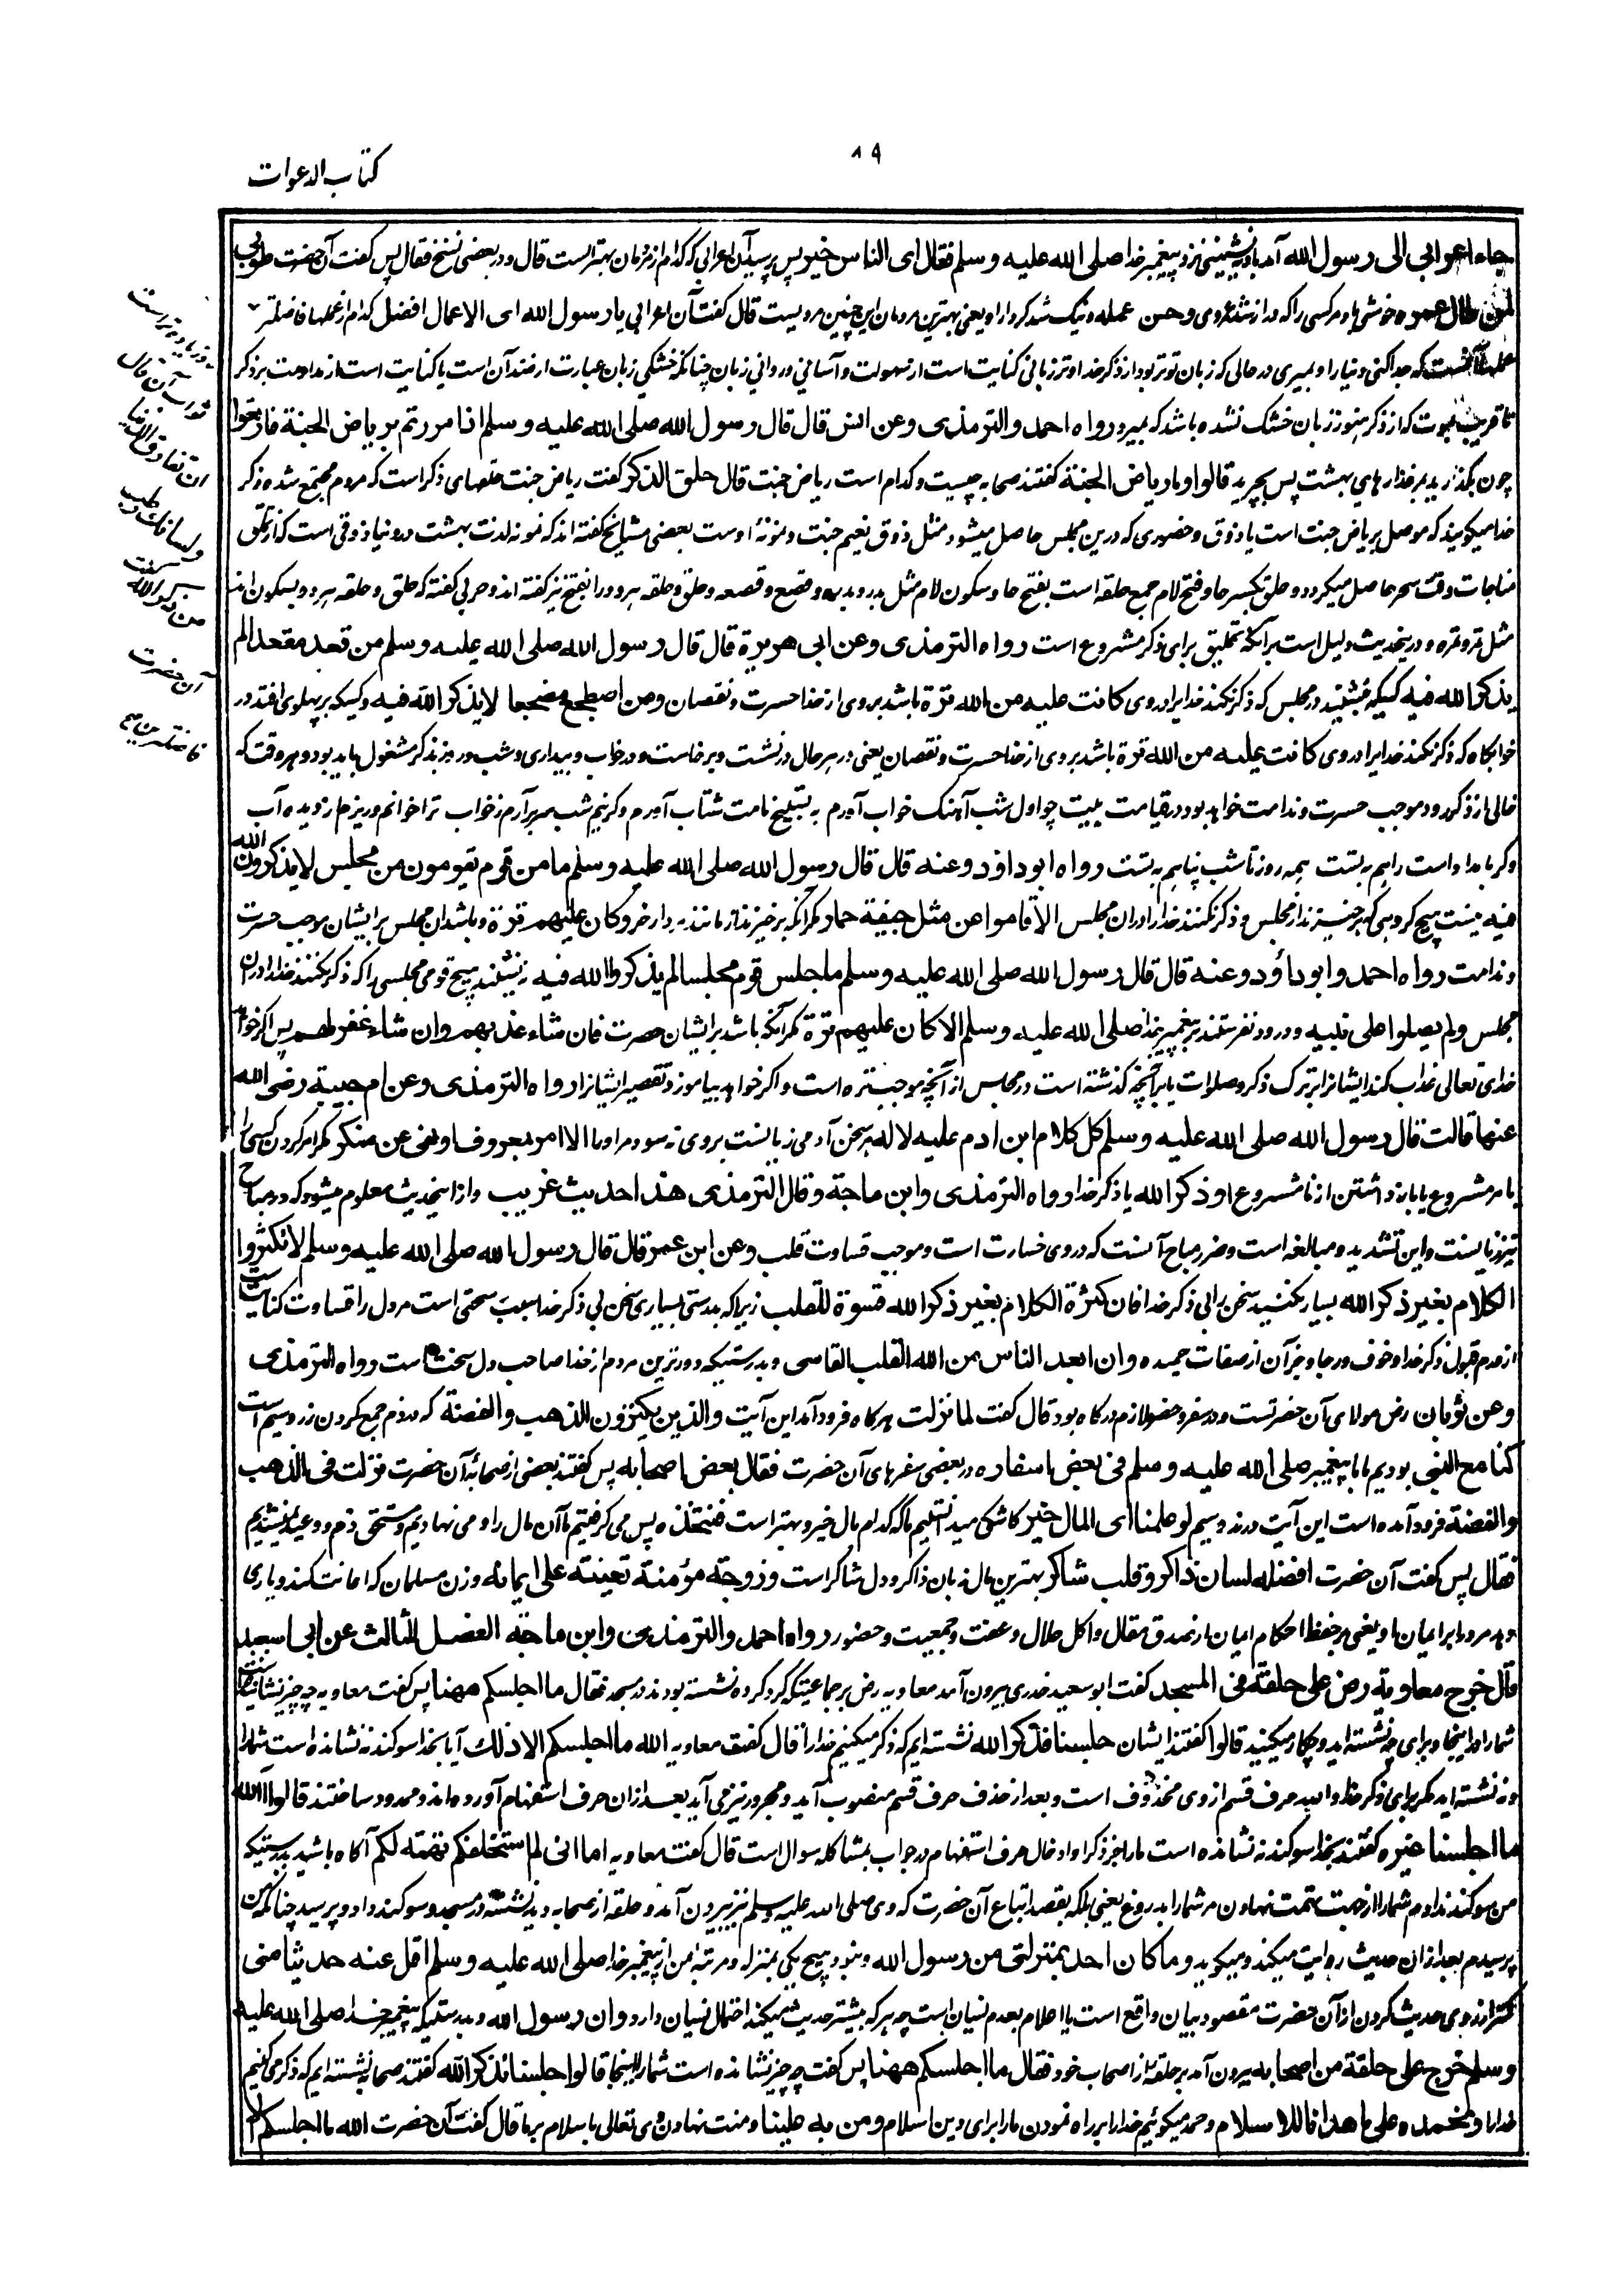 کتاب الدعوات
۸۹
جاء اعرابی الی رسول الله آمد بادیه‌نشینی نزد پیغمبر خدا صلی الله علیه و سلم فقال ای الناس خیر پس پرسید آن اعرابی که کدام از مردمان بهتر است قال و در بعضی نسخ فقال پس گفت آن حضرت طوبی
لمن طال عمره خوشی باد مر کسی را که دراز شد عمر وی و حسن عمله و نیک شد کردار او یعنی بهترین مردمان این چنین مردیست قال گفت آن اعرابی یا رسول الله ای الاعمال افضل کدام از عملها فاضلتر
که جدا کنی دنیا را و بمیری در حالی که زبان تو تر بود از ذکر خدا و تر زبانی کنایت است از سهولت و آسانی و روانی زبان چنانکه خشکی زبان عبارت از ضد آن است یا کنایت است از مداومت بر ذکر
تا قریب موت که از ذکر هنوز زبان خشک نشده باشد که بمیرد رواه احمد والترمذی وعن انس قال قال رسول الله صلی الله علیه و سلم اذا مررتم بریاض الجنة فارتعوا
چون بگذرید بمرغزارهای بهشت پس بچرید قالوا وما ریاض الجنة گفتند صحابه چیست و کدام است ریاض جنت قال حلق الذکر گفت ریاض جنت حلقهای ذکر است که مردم مجتمع شده ذکر
خدا میگویند که موصل بریاض جنت است یا ذوق و حضوری که درین مجلس حاصل میشود مثل ذوق نعیم جنت و نمونهٔ اوست بعضی مشایخ گفته اند که نمونه لذت بهشت در دنیا ذوقی است که از تملق
مناجات وقت سحر حاصل میگردد و حلق بکسر حا و فتح لام جمع حلقه است بفتح حا و سکون لام مثل بدر و بدره و قصع و قصعه و حلق و حلقه هر دو را بفتح نیز گفته اند و حربی گفته که حلق و حلقه هر دو بسکون اند
مثل تمر و تمره و درینحدیث دلیل است برآنکه تحلیق برای ذکر مشروع است رواه الترمذی وعن ابی هریرة قال قال رسول الله صلی الله علیه وسلم من قعد مقعدا لم
یذکر الله فیه کسیکه بنشیند در مجلس که ذکر نکند خدا را در وی کانت علیه من الله ترة باشد بر وی از خدا حسرت و نقصان ومن اضطجع مضجعا لا یذکر الله فیه و کسیکه بر پهلوی افتد در
خوابگاه که ذکر نکند خدا را در وی کانت علیه من الله ترة باشد بر وی از خدا حسرت و نقصان یعنی در هر حال در نشست و برخاست و در خواب و بیداری و شب و روز بذکر مشغول باید بود و هر وقت که
خالی از ذکر رود موجب حسرت و ندامت خواهد بود در قیامت بیت چو اول شب آهنگ خواب آورم به تسبیح نامت شتاب آورم وگر نیم شب سر برآرم ز خواب ترا خوانم و ریزم از دیده آب
وگر بامداد است راهم به تست همه روز تا شب پناهم به تست رواه ابو داؤد وعنه قال قال رسول الله صلی الله علیه وسلم ما من قوم یقومون من مجلس لا یذکرون الله
فیه نیست هیچ گروهی که برخیزند از مجلس و ذکر نکنند خدا را در آن مجلس الا قاموا عن مثل جیفة حمار مگر آنکه برخیزند از مانند مردار خر وکان علیهم ترة و باشد آن مجلس بر ایشان موجب حسرت
و ندامت رواه احمد و ابو داؤد وعنه قال قال رسول الله صلی الله علیه وسلم ما جلس قوم مجلسا لم یذکروا الله فیه ننشینند هیچ قومی مجلسی را که ذکر نکنند خدا را در آن
مجلس ولم یصلوا علی نبیه و درود نفرستند بر پیغمبر خدا صلی الله علیه وسلم الا کان علیهم ترة مگر آنکه باشد بر ایشان حسرت فان شاء عذبهم وان شاء غفر لهم پس اگر خواهد
خدای تعالی عذاب کند ایشانرا بر ترک ذکر و صلوات یا بر آنچه گذشته است در مجالس از آنچه موجب تره است و اگر خواهد بیامرزد تقصیر ایشانرا رواه الترمذی وعن ام حبیبة رضی الله
عنها قالت قال رسول الله صلی الله علیه وسلم کل کلام ابن ادم علیه لا له هر سخن آدمی زیانست بر وی نه سود مر او را الا امر بمعروف او نهی عن منکر مگر امر کردن کسی را
یا مر مشروع یا باز داشتن از نامشروع او ذکر الله یا ذکر خدا رواه الترمذی وابن ماجة وقال الترمذی هذا حدیث غریب و ازینحدیث معلوم میشود که در مباح
نیز زیانست و این تشدید و مبالغه است و ضرر مباح آنست که در وی خسارت است و موجب قساوت قلب وعن ابن عمر قال قال رسول الله صلی الله علیه وسلم لا تکثروا
الکلام بغیر ذکر الله بسیار نکنید سخن را بی ذکر خدا فان کثرة الکلام بغیر ذکر الله قسوة للقلب زیرا که بدرستی بسیاری سخن بی ذکر خدا سبب سختی است مر دل را قساوت کنایت است
از عدم قبول ذکر خدا و خوف و رجا و جز آن از صفات حمیده وان ابعد الناس من الله القلب القاسی و بدرستیکه دورترین مردم از خدا صاحب دل سخت است رواه الترمذی
وعن ثوبان رض مولای آن حضرتست و در سفر و حضر ملازم درگاه بود قال گفت لما نزلت هرگاه فرود آمد این آیت والذین یکنزون الذهب والفضة که در ذم جمع کردن زر و سیم است
کنا مع النبی بودیم ما با پیغمبر صلی الله علیه وسلم فی بعض اسفاره در بعضی سفرهای آن حضرت فقال بعض اصحابه پس گفتند بعضی از صحابهٔ آن حضرت نزلت فی الذهب
والفضة فرود آمده است این آیت در زر و سیم لو علمنا ای المال خیر کاشکی میدانستیم ما که کدام مال خیر و بهتر است فنتخذه پس می گرفتیم ما آن مال را و می نهادیم و مستحق ذم و وعید نمیشدیم
فقال پس گفت آن حضرت افضله لسان ذاکر وقلب شاکر بهترین مال زبان ذاکر و دل شاکر است وزوجة مؤمنة تعینه علی ایمانه و زن مسلمان که اعانت کند و یاری
دهد مرد را بر ایمان او یعنی بر حفظ احکام ایمان از صدق مقال و اکل حلال و عفت و جمعیت و حضور رواه احمد والترمذی وابن ماجة الفصل الثالث عن ابی سعید
قال خرج معاویة رض علی حلقة فی المسجد گفت ابو سعید خدری بیرون آمد معاویه رض بر جماعتیکه گرد کرده نشسته بودند در مسجد فقال ما اجلسکم ههنا پس گفت معاویه چه چیز نشانده است
شما را در اینجا و برای چه نشسته اید و چکار میکنید قالوا گفتند ایشان جلسنا نذکر الله نشسته ایم که ذکر میکنیم خدا را قال گفت معاویه الله ما اجلسکم الا ذلک آیا بخدا سوگند نه نشانده است شما را
و نه نشسته اید مگر برای ذکر خدا والله حرف قسم از وی محذوف است و بعد از حذف حرف قسم منصوب آید و مجرور نیز می آید بعد ازان حرف استفهام آورده اند و ممدود ساختند قالوا آلله
ما اجلسنا غیره گفتند بخدا سوگند نه نشانده است ما را جز ذکر او ادخال حرف استفهام در جواب بمشاکله سوال است قال گفت معاویه اما انی لم استحلفکم تهمة لکم آگاه باشید بدرستیکه
من سوگند ندادم شما را از جهت تهمت نهادن مر شما را بدروغ یعنی بلکه بقصد اتباع آن حضرت که وی صلی الله علیه وسلم نیز بیرون آمد و حلقه از صحابه دید نشسته در مسجد و سوگند داد و پرسید چنانکه من
پرسیدم بعد ازان حدیث روایت میکند و میگوید وما کان احد بمنزلتی من رسول الله و نبود هیچ یکی بمنزله و مرتبهٔ من از پیغمبر خدا صلی الله علیه وسلم اقل عنه حدیثا منی
کمتر از وی حدیث کردن از آن حضرت مقصود بیان واقع است یا اعلام بعدم نسیان است چه هر که بیشتر حدیث میکند احتمال نسیان دارد وان رسول الله و بدرستیکه پیغمبر خدا صلی الله علیه
وسلم خرج علی حلقة من اصحابه بیرون آمد بر حلقه از اصحاب خود فقال ما اجلسکم ههنا پس گفت چه چیز نشانده است شما را اینجا قالوا جلسنا نذکر الله گفتند صحابه نشسته ایم که ذکر می کنیم
خدا را ونحمده علی ما هدانا للاسلام و حمد میگوئیم خدا را بر راه نمودن ما را برای دین اسلام ومن به علینا و منت نهادن وی تعالی باسلام بر ما قال گفت آن حضرت الله ما اجلسکم
قال
ان تفارق الدنیا
ولسانک رطب
من ذکر الله
آن حضرت